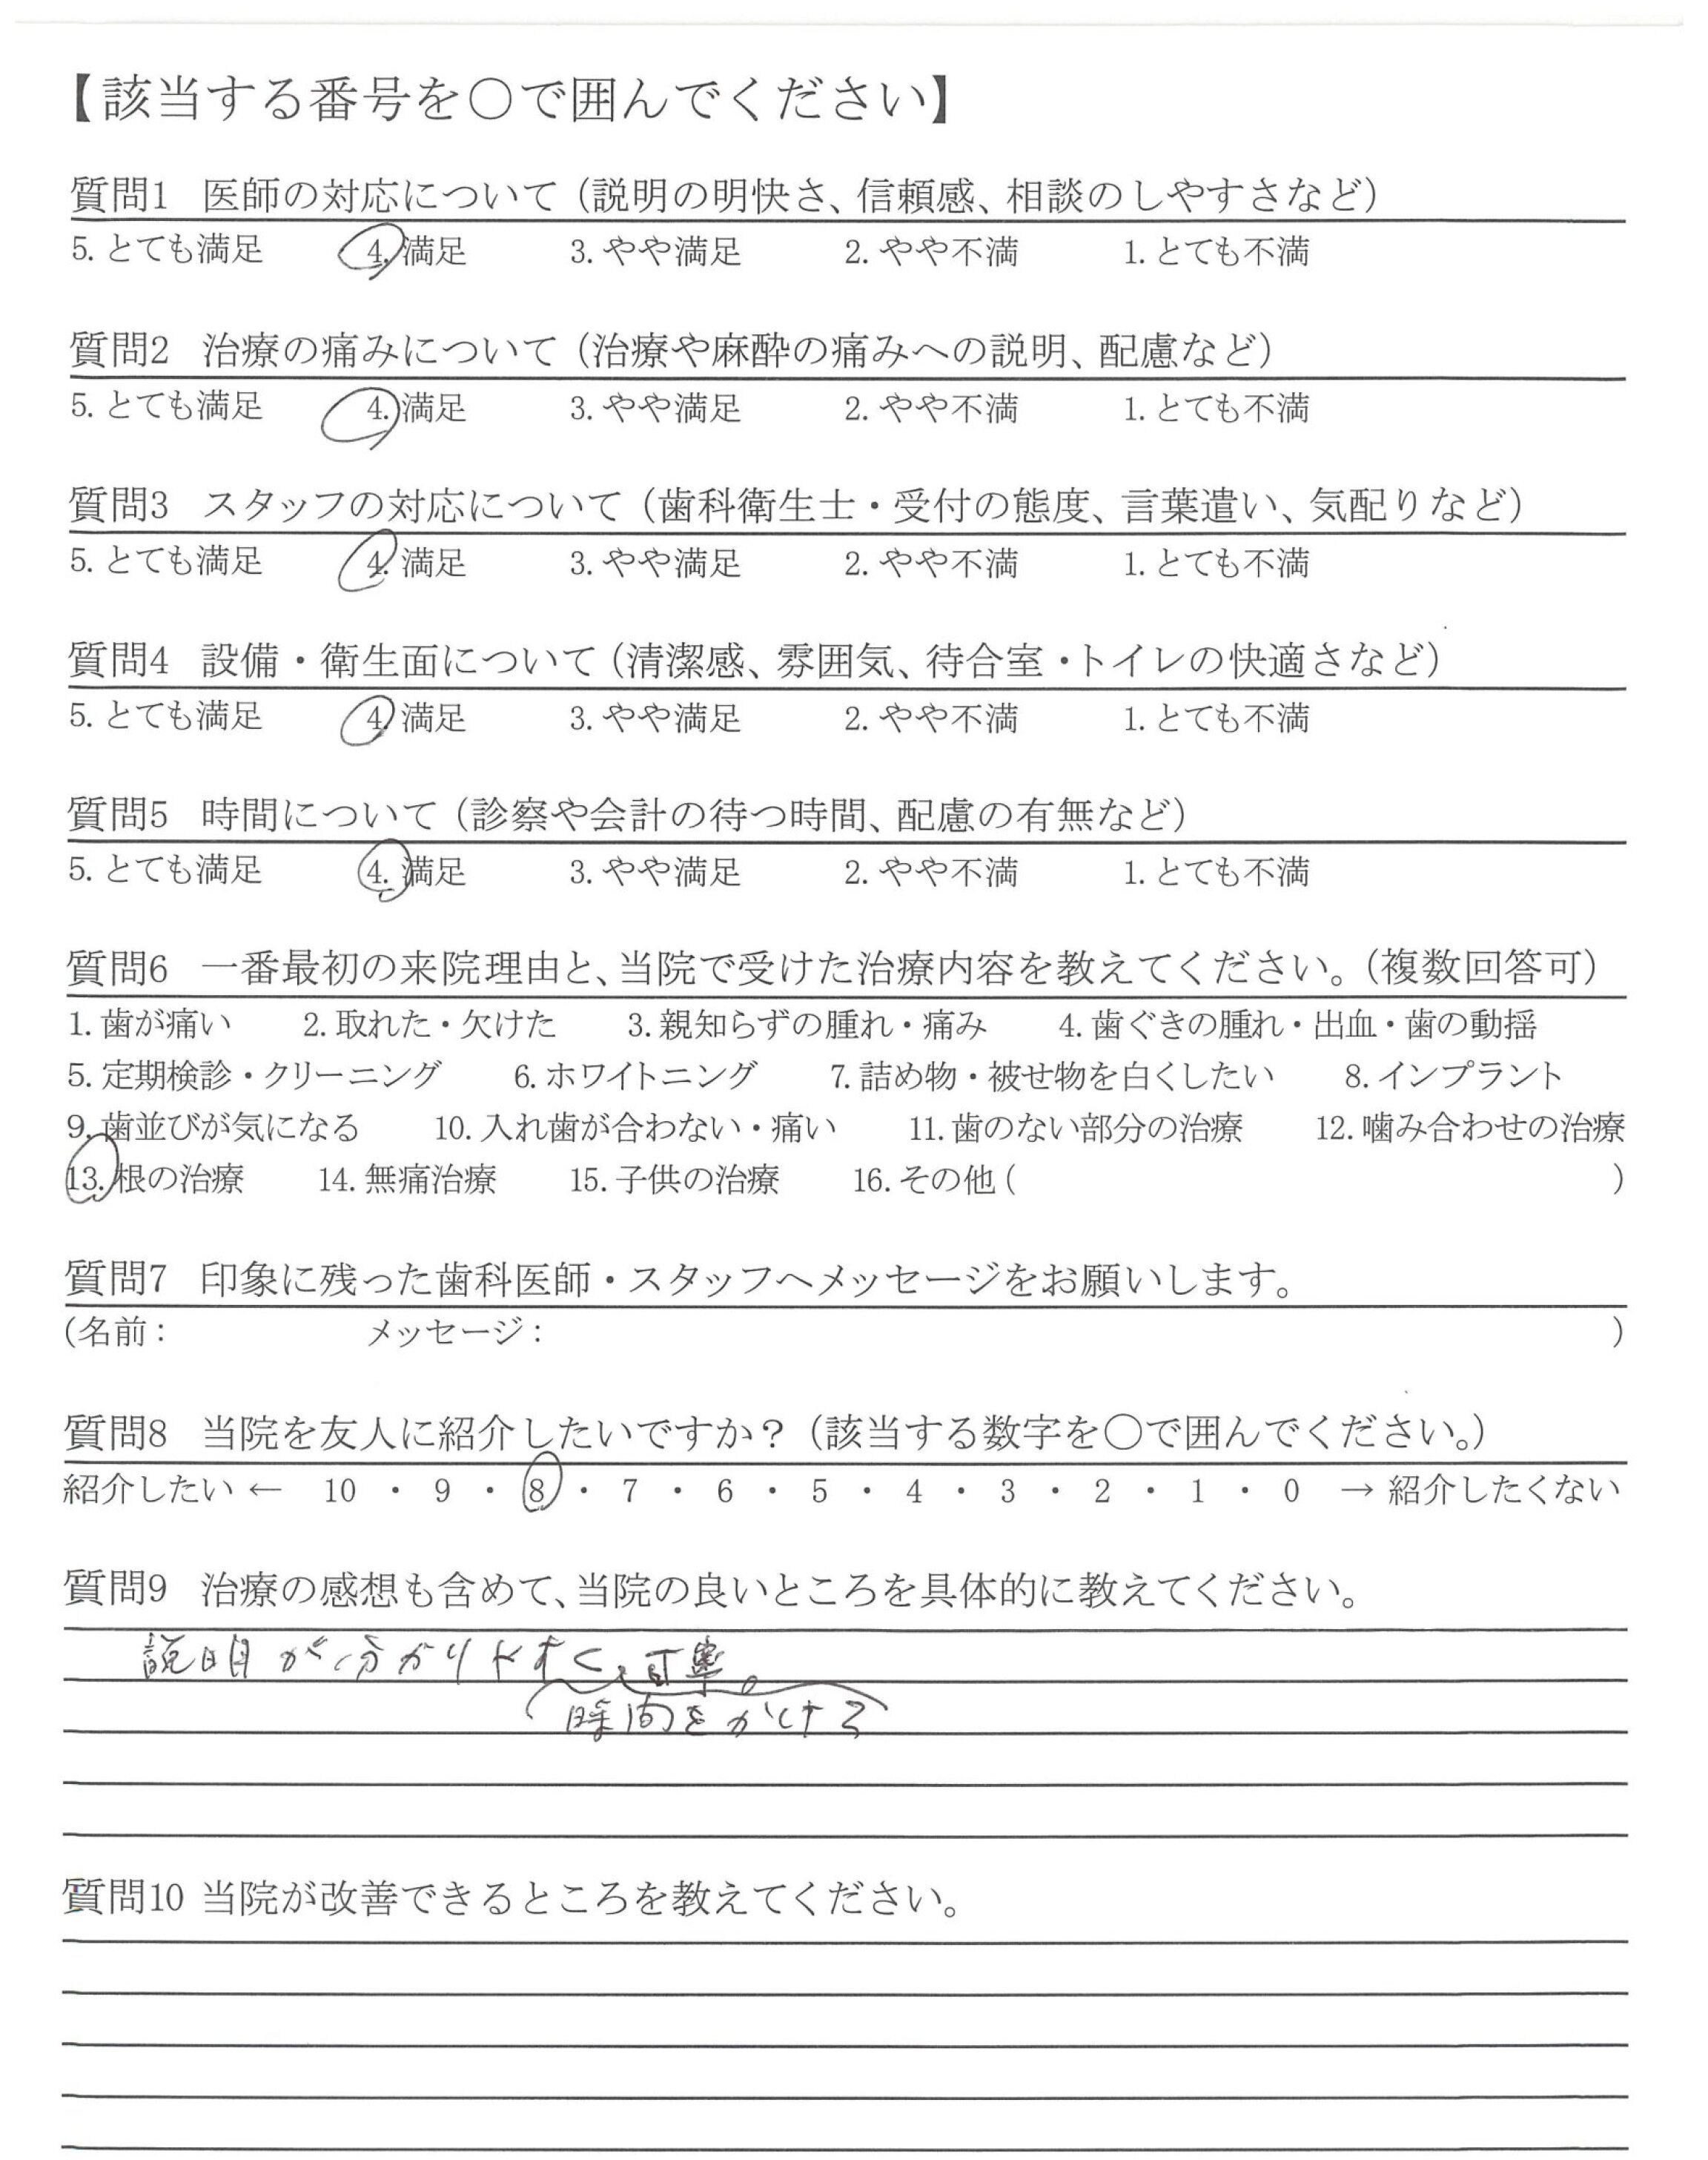 【該当する番号を○で囲んでください】
質問1 医師の対応について（説明の明快さ、信頼感、相談のしやすさなど）
5. とても満足 4. 満足 3. やや満足 2. やや不満 1. とても不満
質問2 治療の痛みについて（治療や麻酔の痛みへの説明、配慮など）
5. とても満足 4. 満足 3. やや満足 2. やや不満 1. とても不満
質問3 スタッフの対応について（歯科衛生士・受付の態度、言葉遣い、気配りなど）
5. とても満足 4. 満足 3. やや満足 2. やや不満 1. とても不満
質問4 設備・衛生面について（清潔感、雰囲気、待合室・トイレの快適さなど）
5. とても満足 4. 満足 3. やや満足 2. やや不満 1. とても不満
質問5 時間について（診察や会計の待つ時間、配慮の有無など）
5. とても満足 4. 満足 3. やや満足 2. やや不満 1. とても不満
質問6 一番最初の来院理由と、当院で受けた治療内容を教えてください。（複数回答可）
1. 歯が痛い 2. 取れた・欠けた 3. 親知らずの腫れ・痛み 4. 歯ぐきの腫れ・出血・歯の動揺
5. 定期検診・クリーニング 6. ホワイトニング 7. 詰め物・被せ物を白くしたい 8. インプラント
9. 歯並びが気になる 10. 入れ歯が合わない・痛い 11. 歯のない部分の治療 12. 噛み合わせの治療
13. 根の治療 14. 無痛治療 15. 子供の治療 16. その他（ ）
質問7 印象に残った歯科医師・スタッフへメッセージをお願いします。
（名前： メッセージ： ）
質問8 当院を友人に紹介したいですか？（該当する数字を○で囲んでください。）
紹介したい ← 10 ・ 9 ・ 8 ・ 7 ・ 6 ・ 5 ・ 4 ・ 3 ・ 2 ・ 1 ・ 0 → 紹介したくない
質問9 治療の感想も含めて、当院の良いところを具体的に教えてください。
説明が分かりやすく、丁寧。
時間をかける
質問10 当院が改善できるところを教えてください。